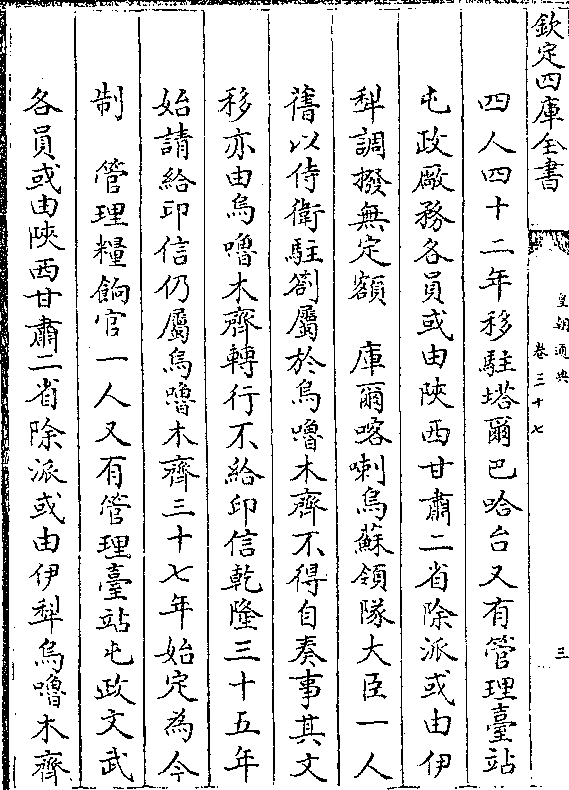 欽定四庫全書
皇朝通典
卷三十七
三
四人四十二年移駐塔爾巴哈台又有管理臺站
屯政廠務各員或由陝西甘肅二省除派或由伊
犁調撥無定額　庫爾喀喇烏蘇領隊大臣一人
舊以侍衛駐劄屬於烏嚕木齊不得自奏事其文
移亦由烏嚕木齊轉行不給印信乾隆三十五年
始請給印信仍屬烏嚕木齊三十七年始定為今
制　管理糧餉官一人又有管理臺站屯政文武
各員或由陝西甘肅二省除派或由伊犁烏嚕木齊